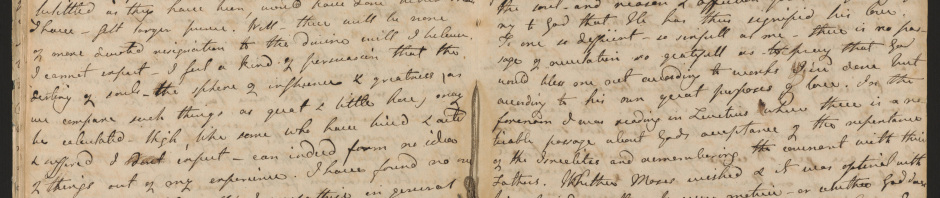 as they have been, would have done
I have – felt larger powers. Well there will be none
of more devoted resignation to the divine will I believe.
I cannot expect – I feel a kind of persuasion that the
destiny of souls – the sphere of influence & greatness, as
we compare such things as great & little here, may
be calculated – tho', like some who have lived & acted
& suffered I expect – can indeed form no idea
of things out of my experience. I have found no
in general
the soul – and reason & affection
ny to God that He has thus signified his love.
To one so deficient – so sinfull as me – there is no pas-
sage of revelation so gratefull as to pray that God
would bless one not according to works I've done but
according to his own great purposes of love. In the
forenoon I was reading in Leviticus where there is a no-
ticable passage about Gods acceptance of the repentance
of the Israelites and remembering the covenant with their
Fathers. Whether Moses wished & it was optional with
or whether God